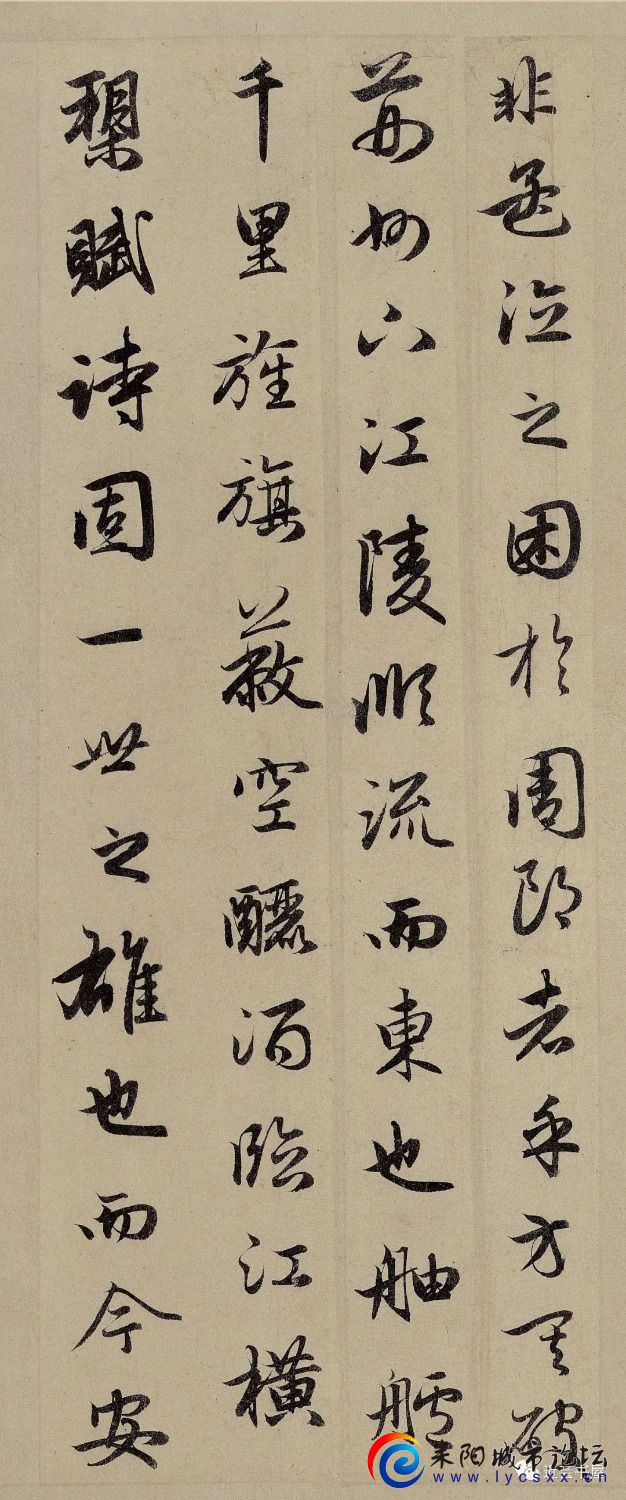 非孟德之困於周郎者乎方其破
荊州下江陵順流而東也舳艫
千里旌旗蔽空釃酒臨江橫
槊賦詩固一世之雄也而今安
耒阳城市论坛
www.lycsxx.cn